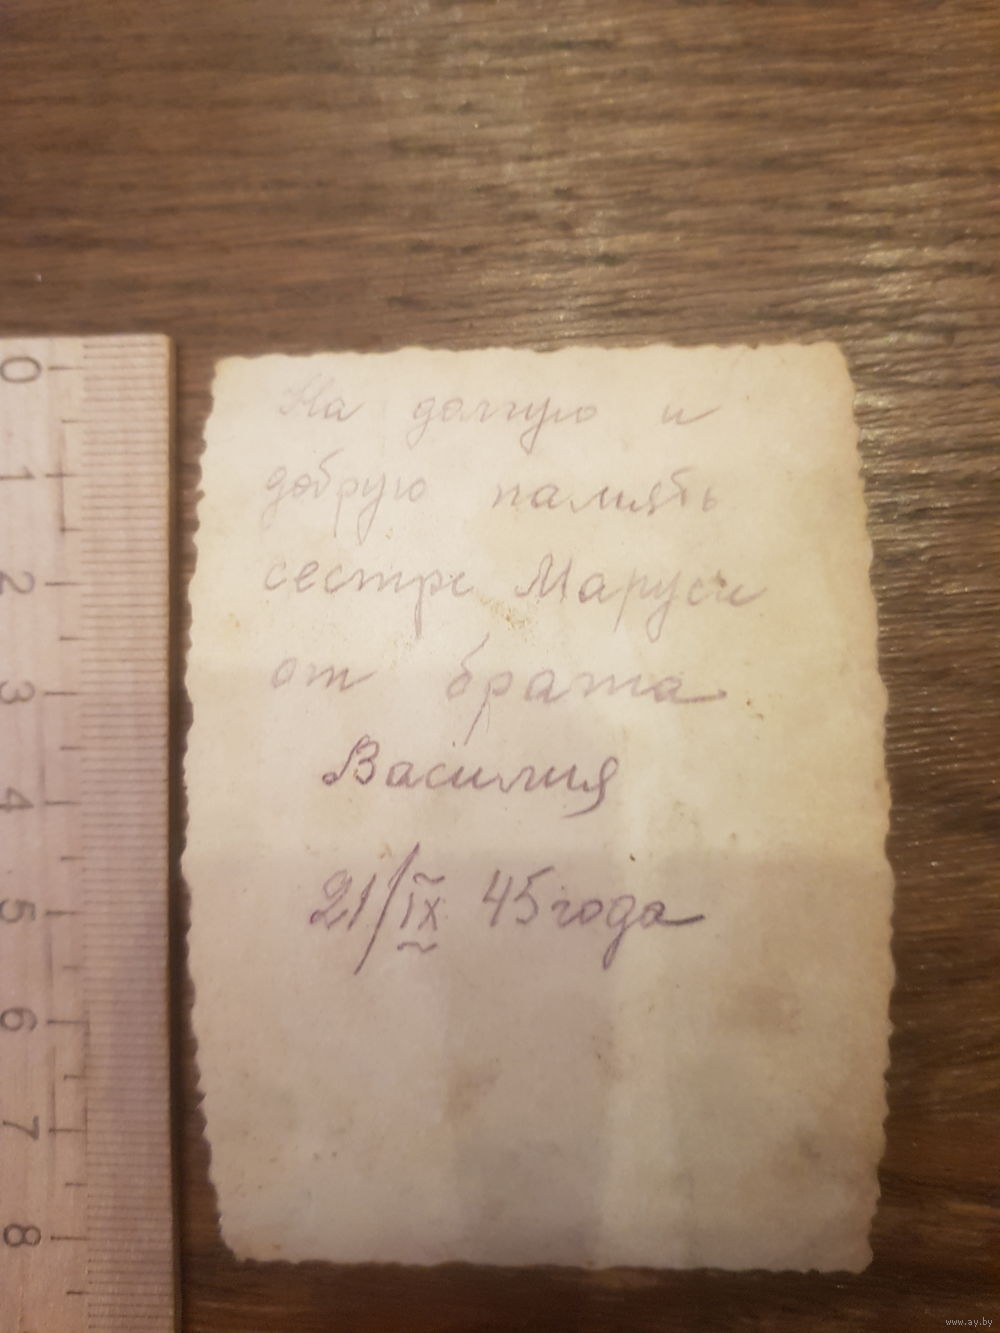 На долгую и
добрую память
сестре Маруси
от брата
Василия
21/IX 45 года
0
1
2
3
4
5
6
7
8
www.ay.by